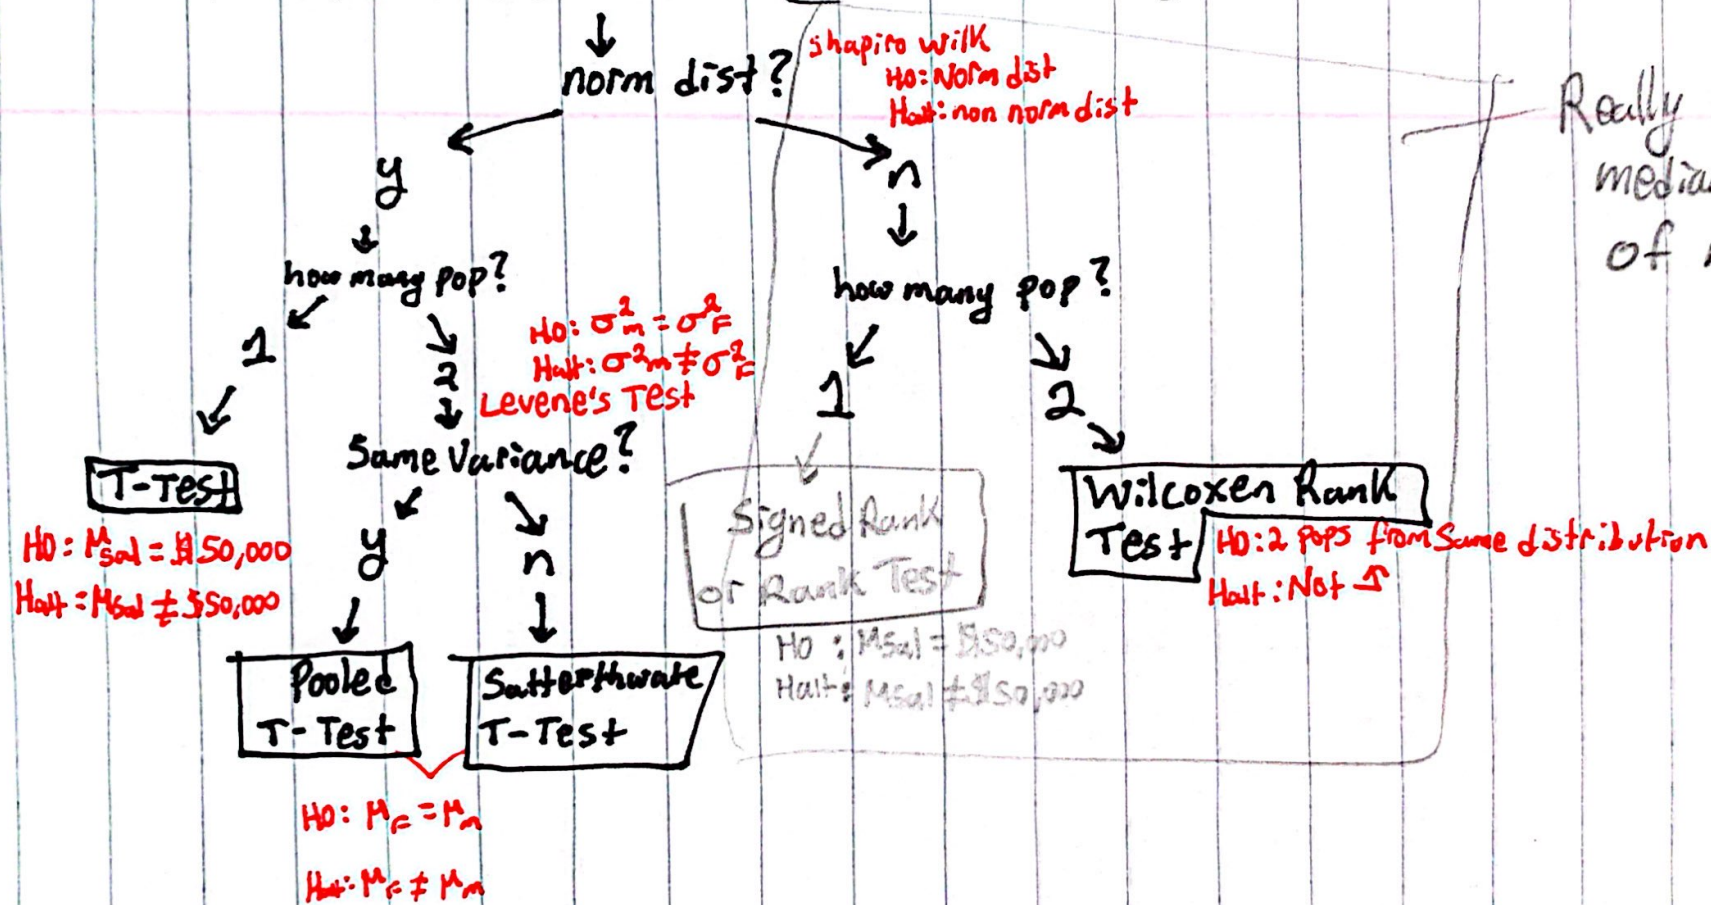 norm dist?
shapiro wilk
H0: Norm dist
Halt: non norm dist
Really
media
of
y
n
how many pop?
how many pop?
1
2
H0: σ²m = σ²F
Halt: σ²m ≠ σ²F
Levene's Test
1
2
Same Variance?
T-Test
H0: μsal = $50,000
Halt = μsal ≠ $50,000
y
n
Signed Rank
or Rank Test
H0: Msal = $50,000
Halt: Msal ≠ $50,000
Wilcoxen Rank
Test
H0: 2 pops from Same distribution
Halt: Not
Pooled
T-Test
Satterthwate
T-Test
H0: μF = μm
Halt: μF ≠ μm